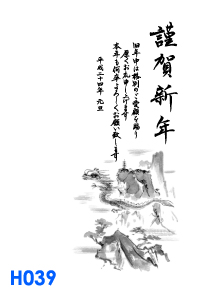 謹賀新年
旧年中は格別のご愛顧を賜り
厚くお礼申し上げます
本年も何卒よろしくお願い致します
平成二十四年 元旦
H039